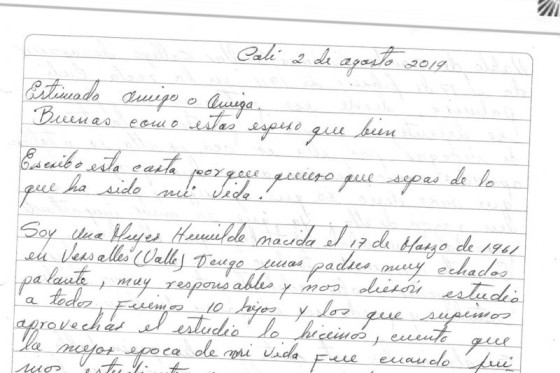 Cali 2 de agosto 2019
Estimado amigo o Amiga.
Buenas como estas espero que bien
Escribo esta carta porque quiero que sepas de lo
que ha sido mi vida.
Soy una Mujer Humilde nacida el 17 de Marzo de 1961
en Versalles (Valle) Tengo unos padres muy echados
palante, muy responsables y nos dieron estudio
a todos, Fuimos 10 hijos y los que supimos
aprovechar el estudio lo hicimos, cuento que
la mejor epoca de mi vida Fue cuando fui